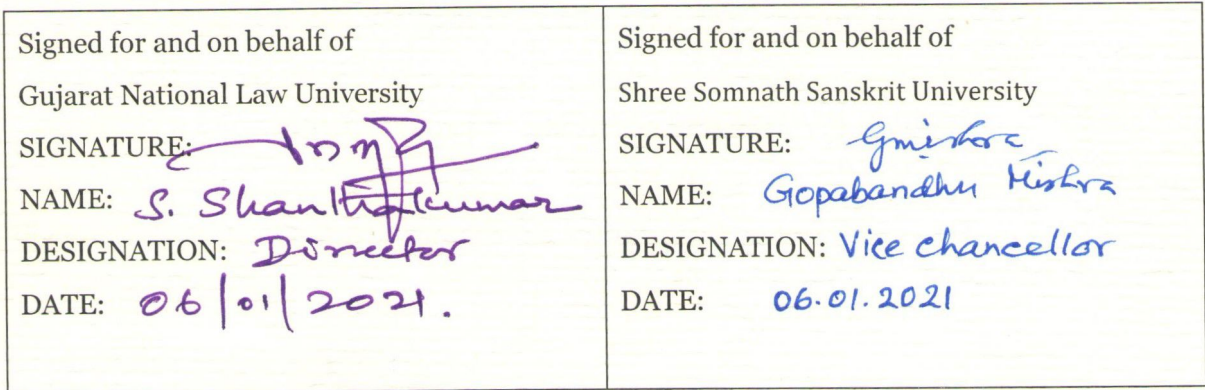 Signed for and on behalf of
Gujarat National Law University
SIGNATURE:
NAME: S. Shanthakumar
DESIGNATION: Director
DATE: 06/01/2021.
Signed for and on behalf of
Shree Somnath Sanskrit University
SIGNATURE: Gmishra
NAME: Gopabandhu Mishra
DESIGNATION: Vice chancellor
DATE: 06.01.2021